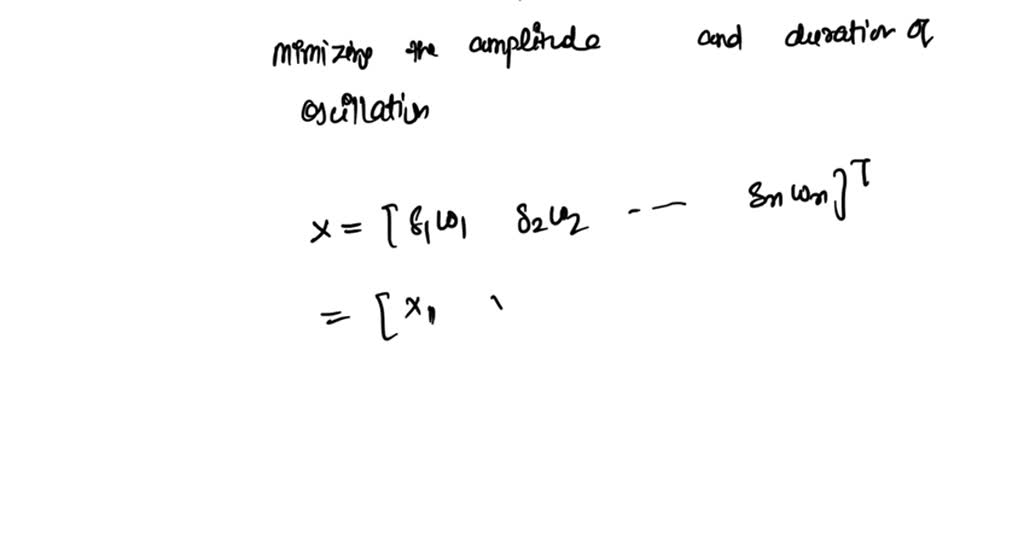 mimizing the amplinde and duration of
oscillation
x = [ δ₁ω₁ δ₂ω₂ -- — δnωn]ᵀ
= [ x₁